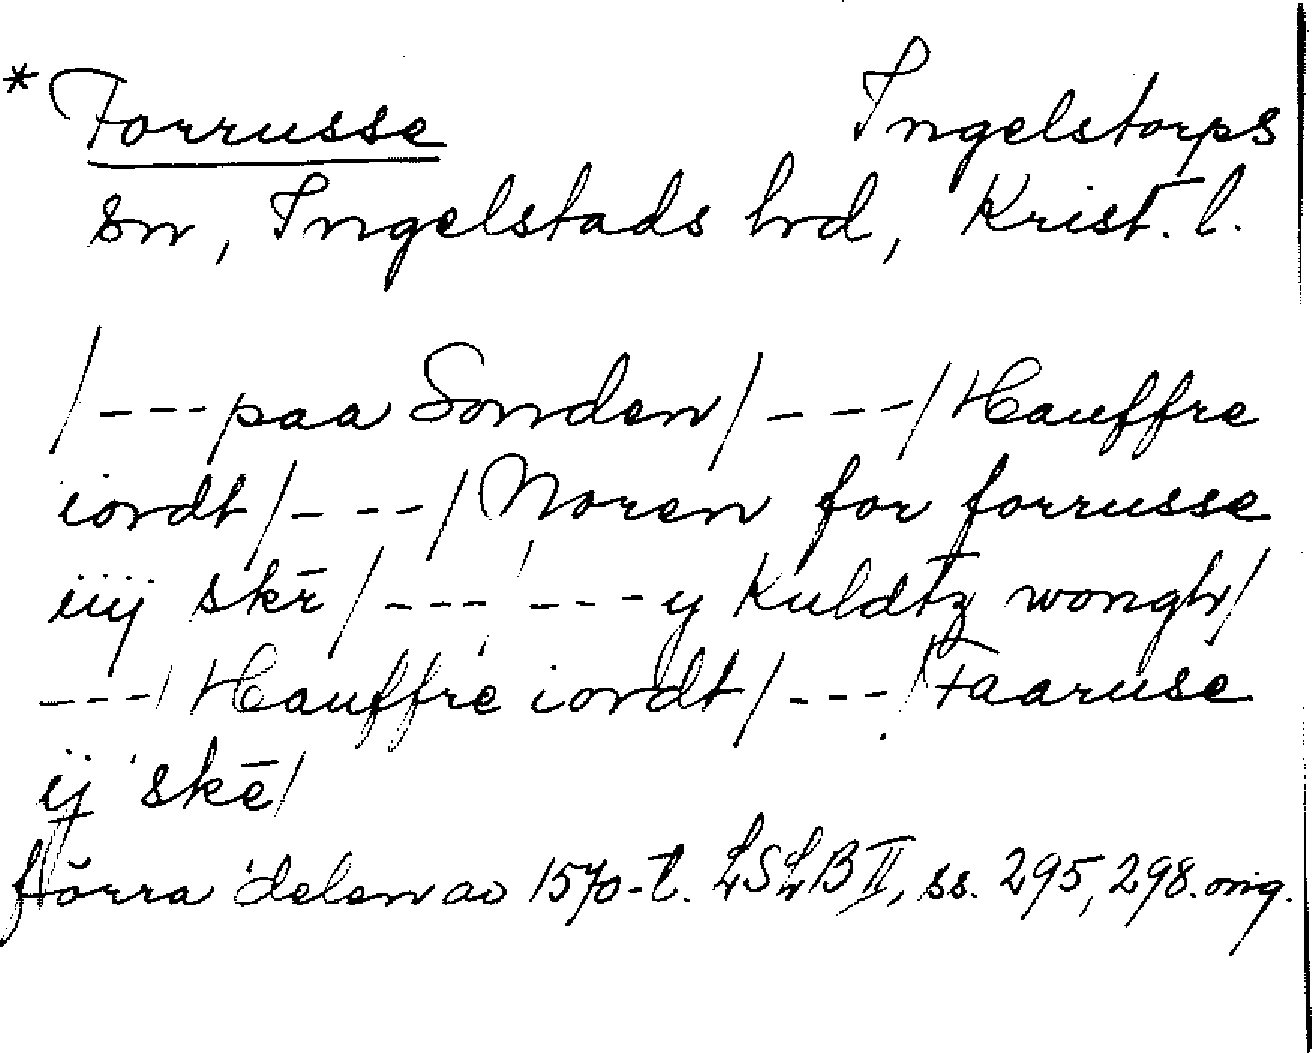 * Forrusse Ingelstorps
sn, Ingelstads hrd, Krist. l.
/--- paa Sonden/ --- / Hauffre
iordt/ --- / Noren for forrusse
iiij skē / --- --- y Kuldtz wongh/
--- / Hauffre iordt/ --- / Faaruse
ij skē/
förra delen av 1570-t. LSLB II, ss. 295, 298. orig.